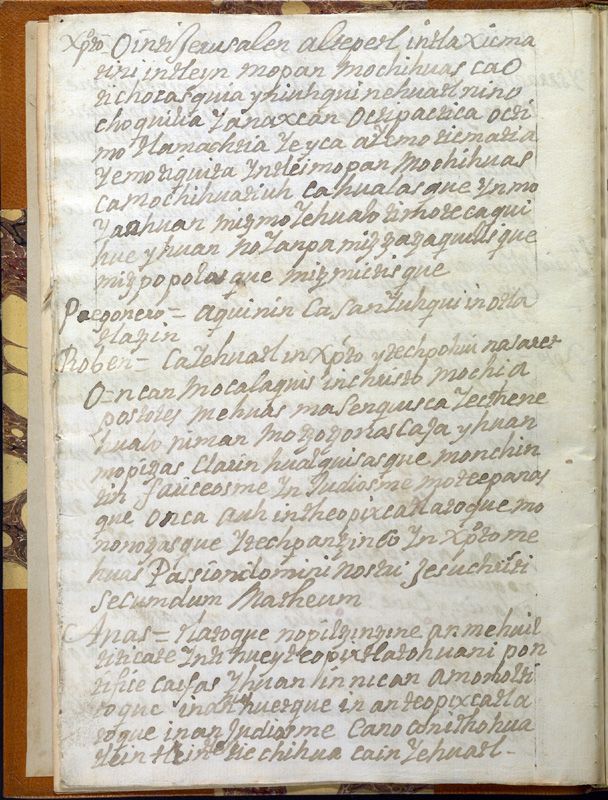 Xp̃to Ointi Jerusalen altepetl intlaxicma
tini intleyn mopan mochihuas ca O
tichocasquia yniuhqui nehuatl nino
choquilia Yanaxcan Otipactica Oti
mo tlamachtia Yeyca ayemo ticmatia
Yemotiquita Yntleimopan Mochihuas
camochihuatiuh cahualasque Ynmo
Yaohuan mitzmoYehualo timotecaqui
hue yhuan noYanpa mitz
mitzpopolosque mitzmictisque
Pregonero = aquinin Casan Yuhqui inotla
tlazin
Roben = CaYehuatl in Xp̃to ytechpohui nasaret
Oncan Mocalaquis inchristo mochia
pastores mehuas masenquisca tecthene
hualo niman motzotzonas Caxa yhuan
mopitzas Clarin hualquisasque monchin
tin fariceosme Yn Judiosme motecpanas
que Onca auh intheopixcatlatoque mo
nonotzasque Ytechpantzinco Yn Xp̃to me
huas Passion domini nostri Jesuchristi
secumdum Matheum
Anas = tlatoque nopiltzintzine anmehuil
titicate Ynti hueyteopixtlatohuani pon
tifice caifas Yhuan innican amomolti
toque inanhuetque in anteopixcatla
toque inan Judiosme Cano
tlein tlein ticchihua cain Yehuatl =